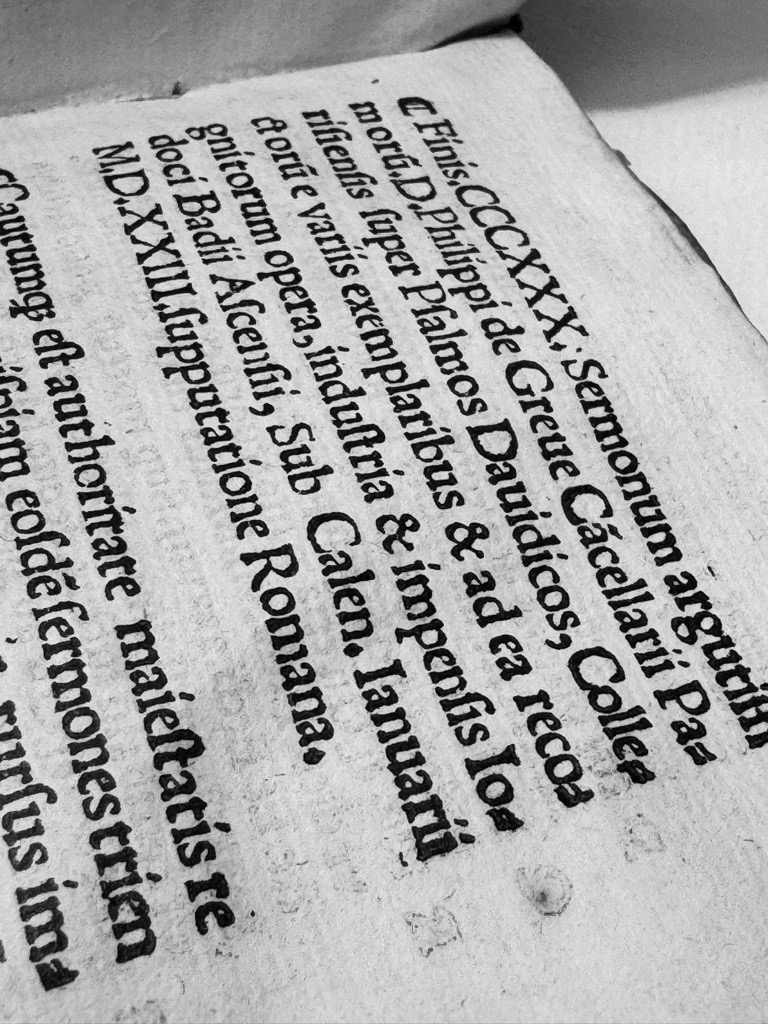 ¶ Finis. CCCXXX. Sermonum argutiſſi
morū. D. Philippi de Greue Cācellarii Pa⸗
riſienſis ſuper Pſalmos Dauidicos, Colle⸗
ctorū e variis exemplaribus & ad ea reco⸗
gnitorum opera, induſtria & impenſis Io⸗
doci Badii Aſcenſii, Sub Calen. Ianuarii
M.D.XXIII. ſupputatione Romana.
Cautumqꝫ eſt authoritate maieſtatis re
eoſdē ſermones trien
rurſus im⸗